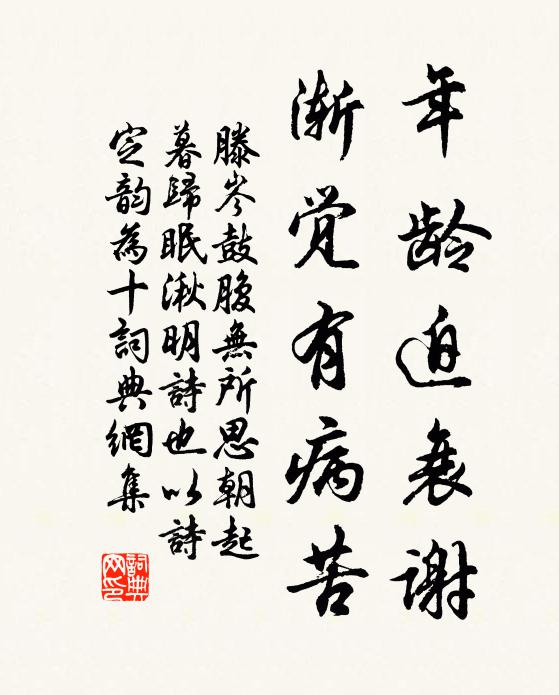 年龄迫衰谢
渐觉有病苦
滕岑鼓腹無所思朝起
暮歸眠湫明詩也以詩
定韵為十詞典網集
詞典
网印